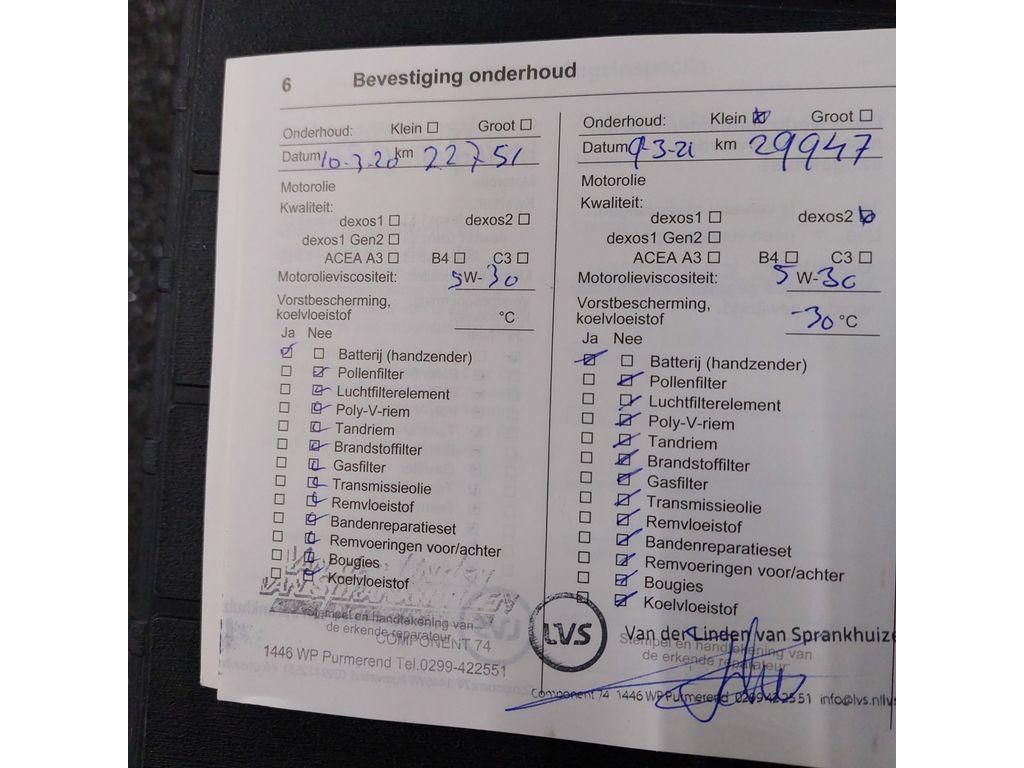 6 Bevestiging onderhoud
Onderhoud: Klein ☐ Groot ☐
Datum 10-3-20 km 22751
Motorolie
Kwaliteit:
dexos1 ☐ dexos2 ☐
dexos1 Gen2 ☐
ACEA A3 ☐ B4 ☐ C3 ☐
Motorolieviscositeit: 5W-30
Vorstbescherming,
koelvloeistof °C
Ja Nee
☑ ☐ Batterij (handzender)
☐ ☑ Pollenfilter
☐ ☑ Luchtfilterelement
☐ ☑ Poly-V-riem
☐ ☑ Tandriem
☐ ☑ Brandstoffilter
☐ ☑ Gasfilter
☐ ☑ Transmissieolie
☐ ☑ Remvloeistof
☐ ☑ Bandenreparatieset
☐ ☑ Remvoeringen voor/achter
☐ ☑ Bougies
☐ ☑ Koelvloeistof
Stempel en handtekening van
de erkende reparateur
COMPONENT 74
1446 WP Purmerend Tel.0299-422551
Onderhoud: Klein ☑ Groot ☐
Datum 9-3-21 km 29947
Motorolie
Kwaliteit:
dexos1 ☐ dexos2 ☑
dexos1 Gen2 ☐
ACEA A3 ☐ B4 ☐ C3 ☐
Motorolieviscositeit: 5 W-30
Vorstbescherming,
koelvloeistof -30 °C
Ja Nee
☑ ☐ Batterij (handzender)
☐ ☑ Pollenfilter
☐ ☑ Luchtfilterelement
☐ ☑ Poly-V-riem
☐ ☑ Tandriem
☐ ☑ Brandstoffilter
☐ ☑ Gasfilter
☐ ☑ Transmissieolie
☐ ☑ Remvloeistof
☐ ☑ Bandenreparatieset
☐ ☑ Remvoeringen voor/achter
☐ ☑ Bougies
☐ ☑ Koelvloeistof
LVS Van der Linden van Sprankhuize
Stempel en handtekening van
de erkende reparateur
Component 74 1446 WP Purmerend 0299422551 info@lvs.nl